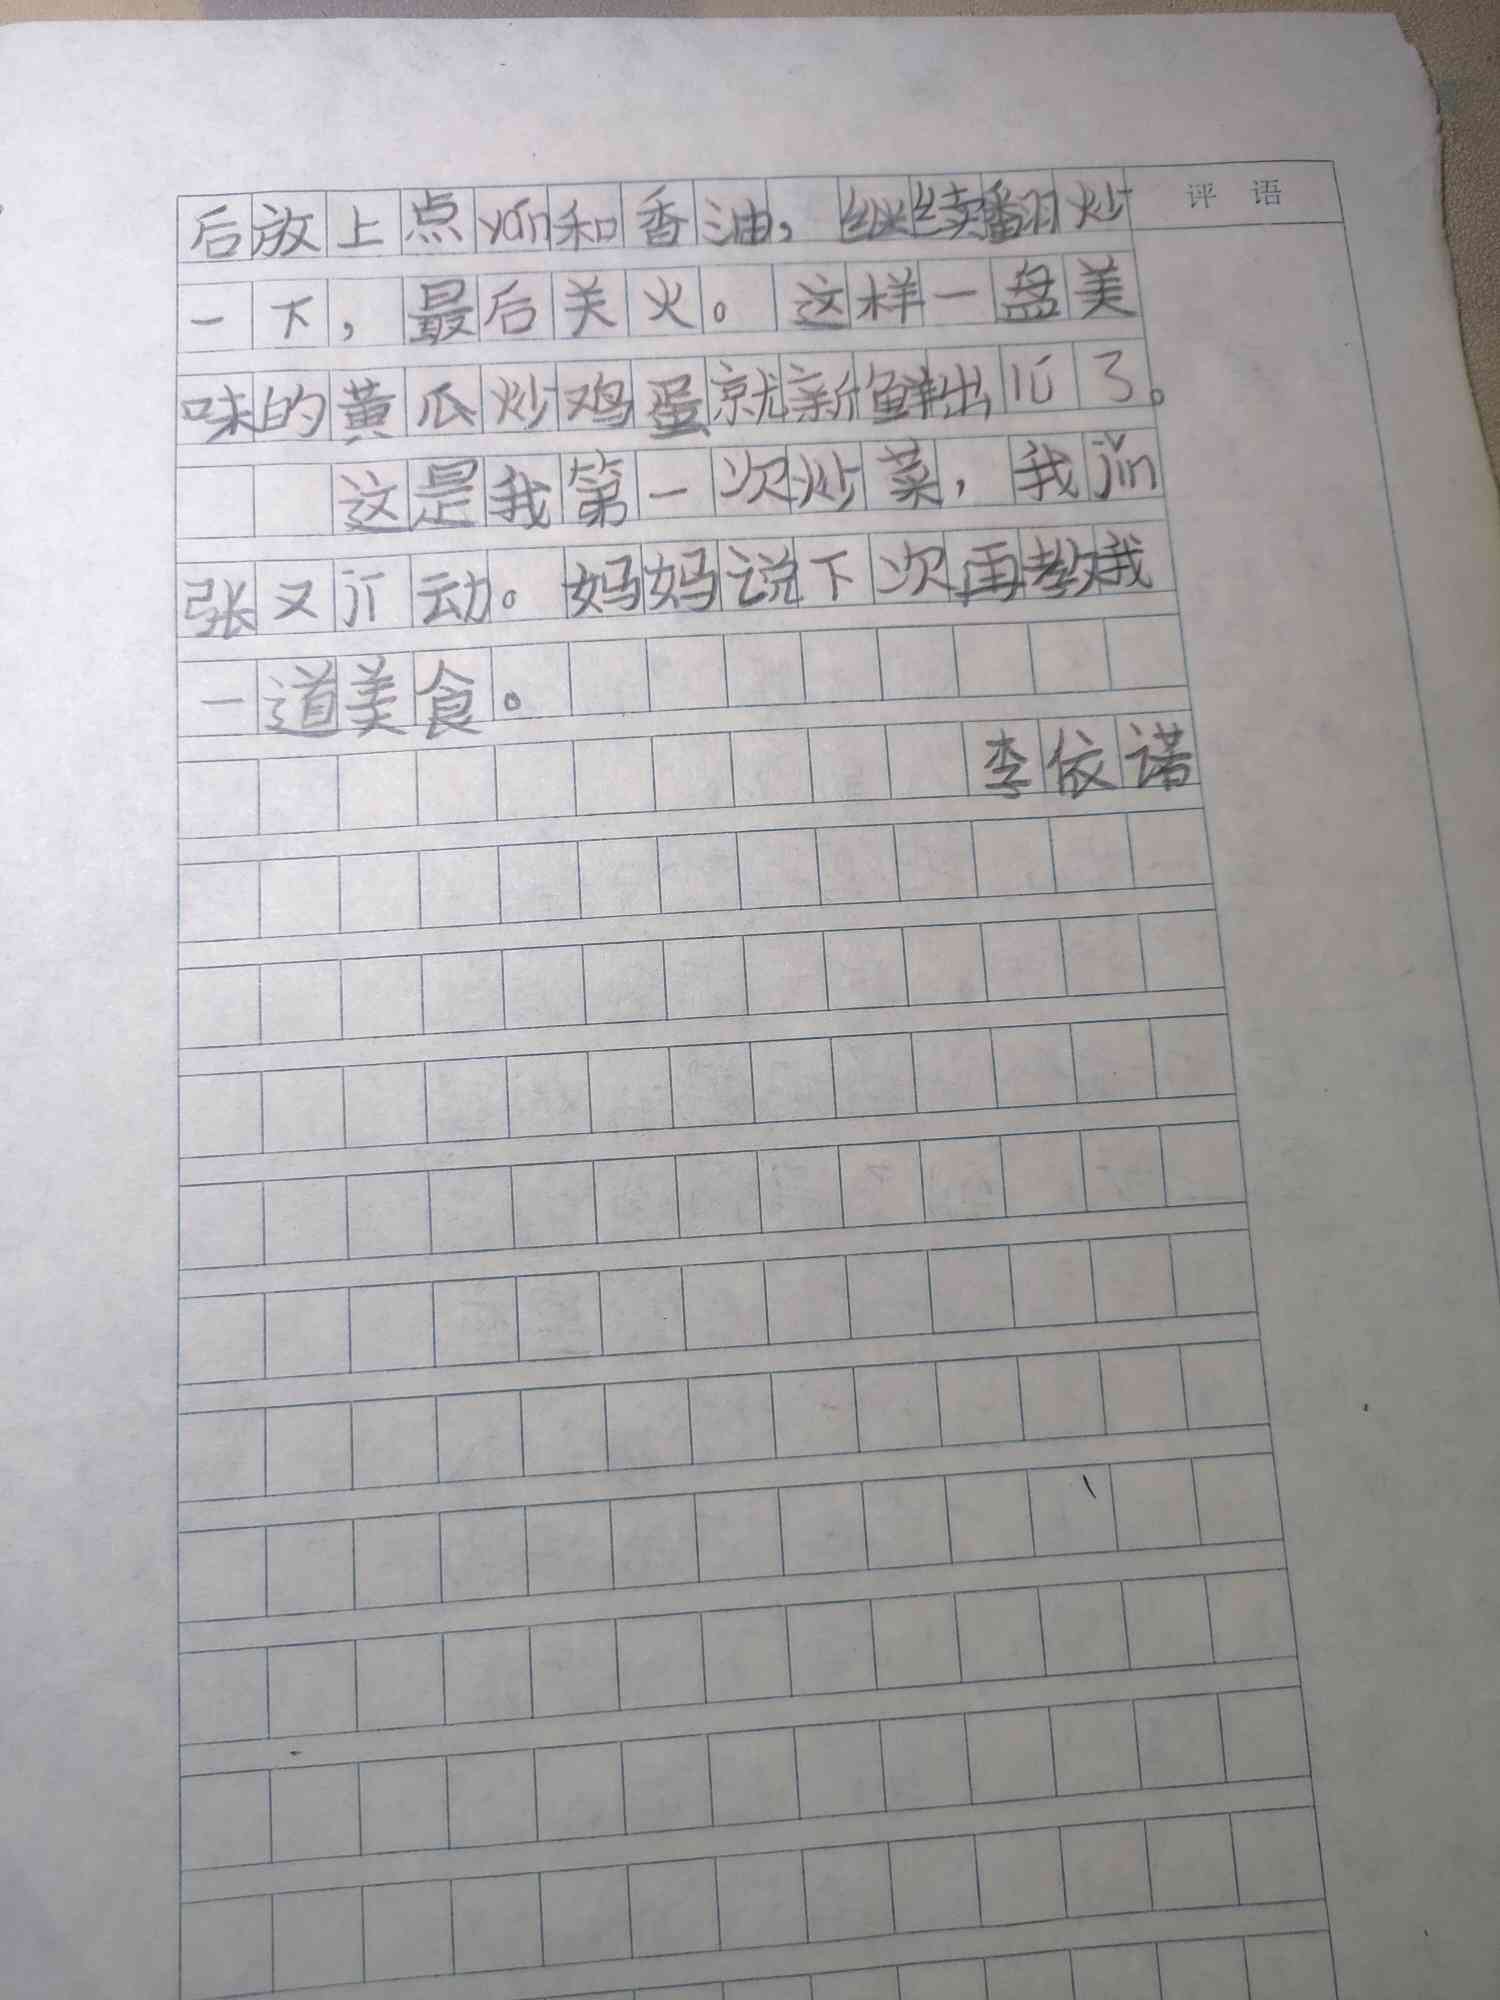 评 语
后放上点yán和香油，继续翻炒
一下，最后关火。这样一盘美
味的黄瓜炒鸡蛋就新鲜出lú了。
这是我第一次炒菜，我jǐn
张又jī动。妈妈说下次再教我
一道美食。
李依诺